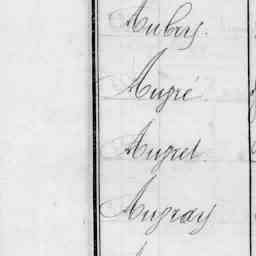 Aubry.
Augré.
Augret.
Augray